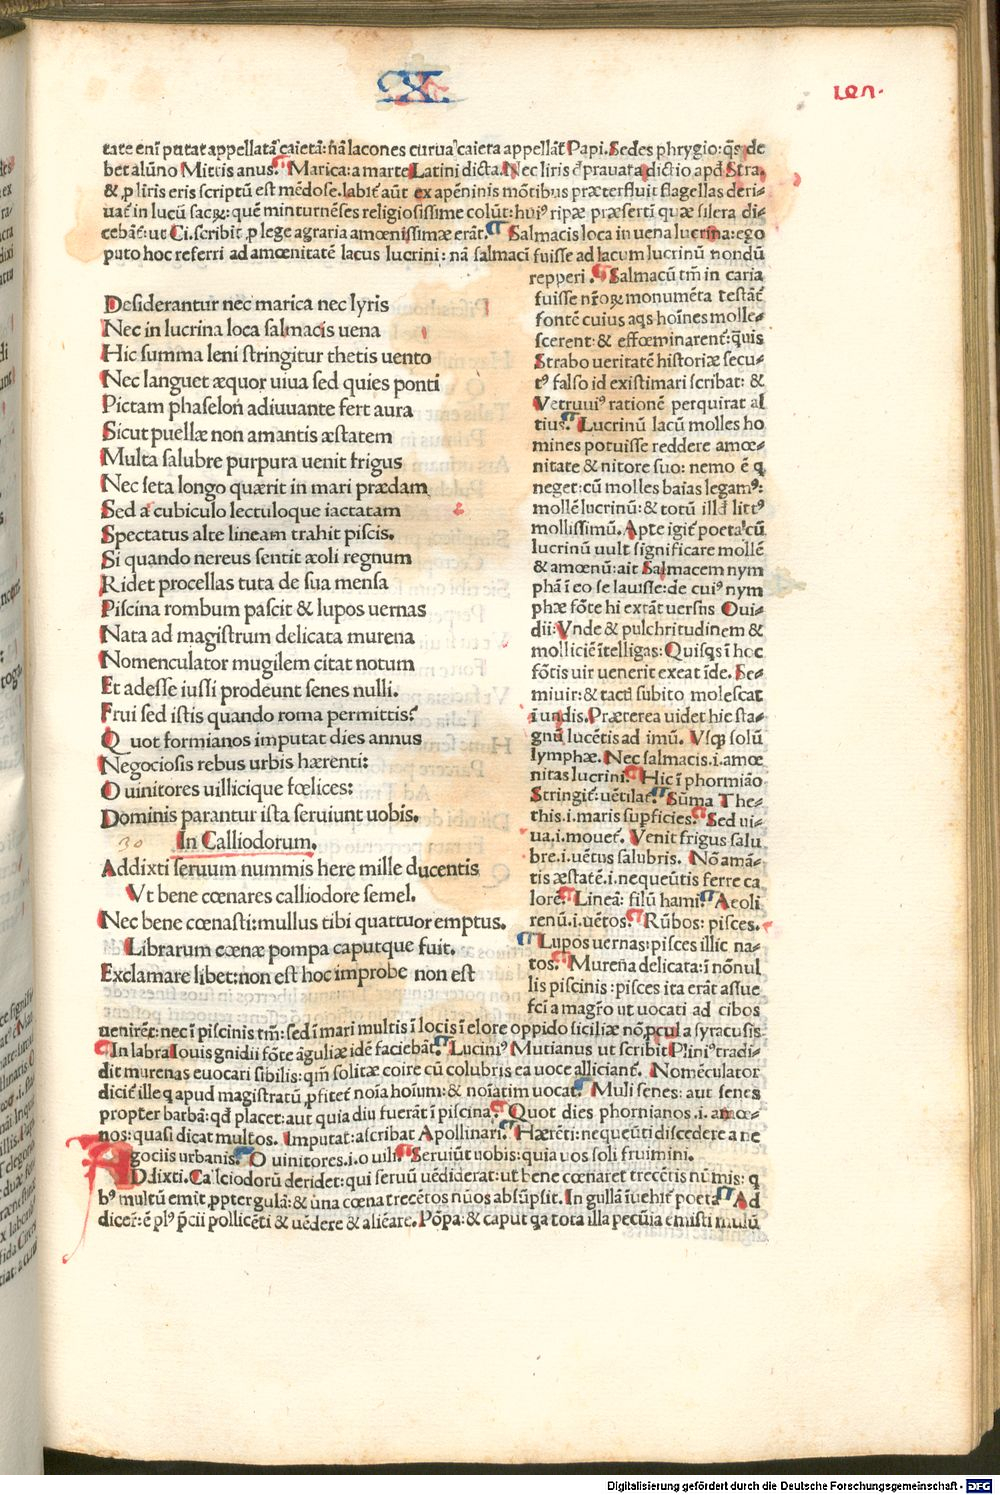 X.
tate eni putat appellatā caietā: nā lacones curua caieta appellāt Papi. Sedes phrygio: qs de
bet alūno Mittis anus. Marica: a marte Latini dicta. Nec liris ē prauata dictio apd Stra.
& p liris eris scriptū est mēdose. labit aūt ex apēninis mōtibus præterfluit flagellas deri-
uat in lucū sacꝝ: quē minturnēses religiosissime colūt: huiꝰ ripæ præsertū quæ silera di-
cebāt: ut Ci. scribit p lege agraria amœnissimæ erāt. Salmacis loca in uena lucrina: ego
puto hoc referri ad amœnitatē lacus lucrini: nā salmaci fuisse ad lacum lucrinū nondū
repperi. Salmacū tm in caria
fuisse nroꝝ monumēta testāt
fontē cuius aqs hoines molle-
scerent: & effœminarent: quis
Strabo ueritatē historiæ secu-
tꝰ falso id existimari scribat: &
Vetruuiꝰ rationē perquirat al
tius. Lucrinū lacū molles ho
mines potuisse reddere amœ-
nitate & nitore suo: nemo ē q
neget: cū molles baias legamꝰ:
mollē lucrinū: & totū illd littꝰ
mollissimū. Apte igit poeta cū
lucrinū uult significare mollē
& amœnū: ait Salmacem nym
phā i eo se lauisse: de cuiꝰ nym
phæ fōte hi extāt uersus Oui-
dii: Vnde & pulchritudinem &
molliciē ītelligas: Quisqs i hoc
fōtis uir uenerit exeat īde. Se-
miuir: & tacti subito molescat
ī undis. Præterea uidet hic sta-
gnū lucētis ad imū. Vsq solū
lymphæ. Nec salmacis. i. amœ
nitas lucrini. Hic ī phormiāo
Stringit: uētilat. Sūma The-
this. i. maris supficies. Sed ui-
ua. i. mouet. Venit frigus salu
bre. i. uētus salubris. Nō amā-
tis æstatē. i. nequeūtis ferre ca
lorē. Lineā: filū hami. Aeoli
renū. i. uētos. Rūbos: pisces.
Lupos uernas: pisces illic na-
tos. Murena delicata: ī nōnul
lis piscinis: pisces ita erāt assue
fci a magro ut uocati ad cibos
Desiderantur nec marica nec lyris
Nec in lucrina loca salmacis uena
Hic summa leni stringitur thetis uento
Nec languet æquor uiua sed quies ponti
Pictam phaselon adiuuante fert aura
Sicut puellæ non amantis æstatem
Multa salubre purpura uenit frigus
Nec seta longo quærit in mari prædam
Sed a cubiculo lectuloque iactatam
Spectatus alte lineam trahit piscis.
Si quando nereus sentit æoli regnum
Ridet procellas tuta de sua mensa
Piscina rombum pascit & lupos uernas
Nata ad magistrum delicata murena
Nomenculator mugilem citat notum
Et adesse iussi prodeunt senes nulli.
Frui sed istis quando roma permittis?
Quot formianos imputat dies annus
Negociosis rebus urbis hærenti:
O uinitores uillicique fœlices:
Dominis parantur ista seruiunt uobis.
30 In Calliodorum.
Addixti seruum nummis here mille ducentis
Vt bene cœnares calliodore semel.
Nec bene cœnasti: mullus tibi quattuor emptus.
Librarum cœnæ pompa caputque fuit.
Exclamare libet: non est hoc improbe non est
uenirēt: nec ī piscinis tm: sed ī mari multis ī locis ī elore oppido siciliæ nō pcul a syracusis
In labra Iouis gnidii fōte āguliæ idē faciebāt. Luciniꝰ Mutianus ut scribit Pliniꝰ tradi-
dit murenas euocari sibilis: qm solitæ coire cū colubris ea uoce alliciant. Nomēculator
dicit ille q apud magistratū pfitet noia hoium: & noiatim uocat. Muli senes: aut senes
propter barbā: qd placet: aut quia diu fuerāt ī piscina. Quot dies phornianos. i. amœ-
nos: quasi dicat multos. Imputat: ascribat Apollinari. Hærēti: nequeūti discedere a ne
gociis urbanis. O uinitores. i. o uili. Seruiūt uobis: quia uos soli fruimini.
ADdixti. Calciodorū deridet: qui seruū uēdiderat: ut bene cœnaret trecētis nūmis: q
bꝰ multū emit ppter gulā: & una cœna trecētos nūos absūpsit. In gullā īuehit poeta Ad
dicer: ē plꝰ pcii pollicēti & uēdere & aliēare. Pōpa: & caput qa tota illa pecūia emisti mulū
Digitalisierung gefördert durch die Deutsche Forschungsgemeinschaft - DFG